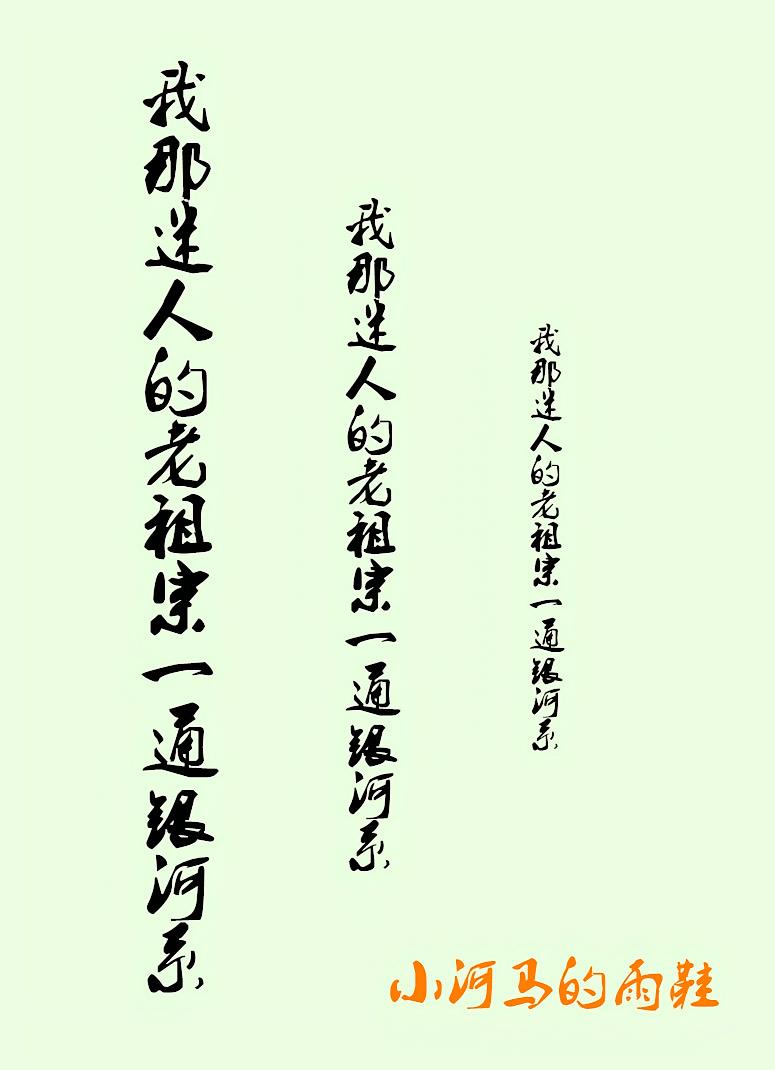 我那迷人的老祖宗一通银河系
我那迷人的老祖宗一通银河系
我那迷人的老祖宗一通银河系
小河马的雨鞋